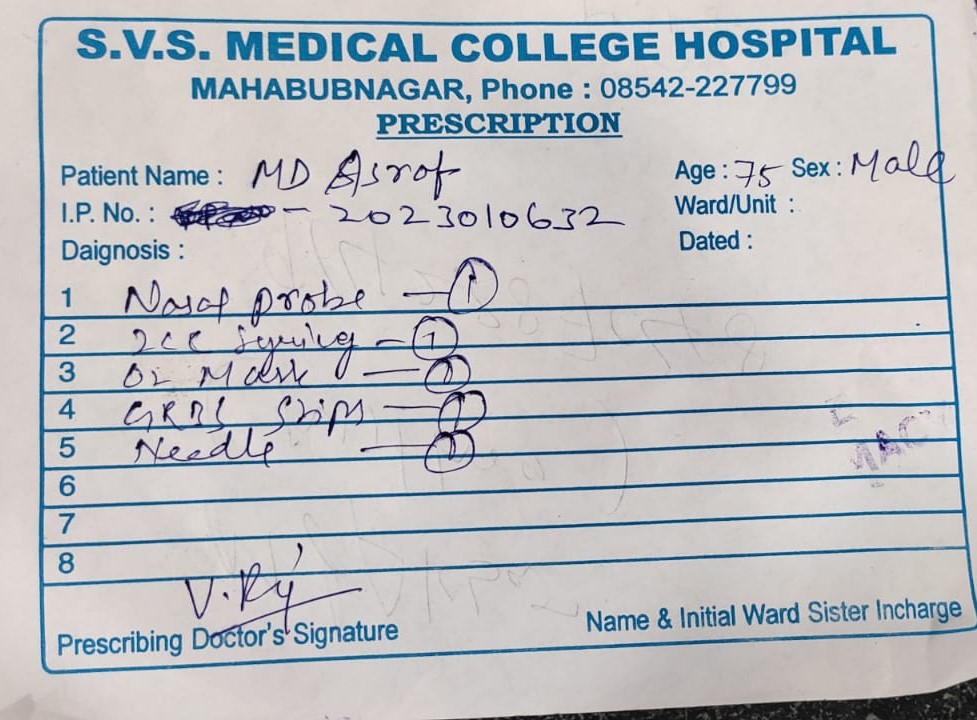 S.V.S. MEDICAL COLLEGE HOSPITAL
MAHABUBNAGAR, Phone : 08542-227799
PRESCRIPTION
Patient Name : MD Asrof Age : 75 Sex : Male
I.P. No. : - 2023010632 Ward/Unit :
Daignosis : Dated :
1 Nasal probe - 1
2 2cc Syring - 1
3 O2 Mask - 1
4 GRBS Strips - 1
5 Needle - 1
6
7
8
V. Rj
Prescribing Doctor's Signature Name & Initial Ward Sister Incharge